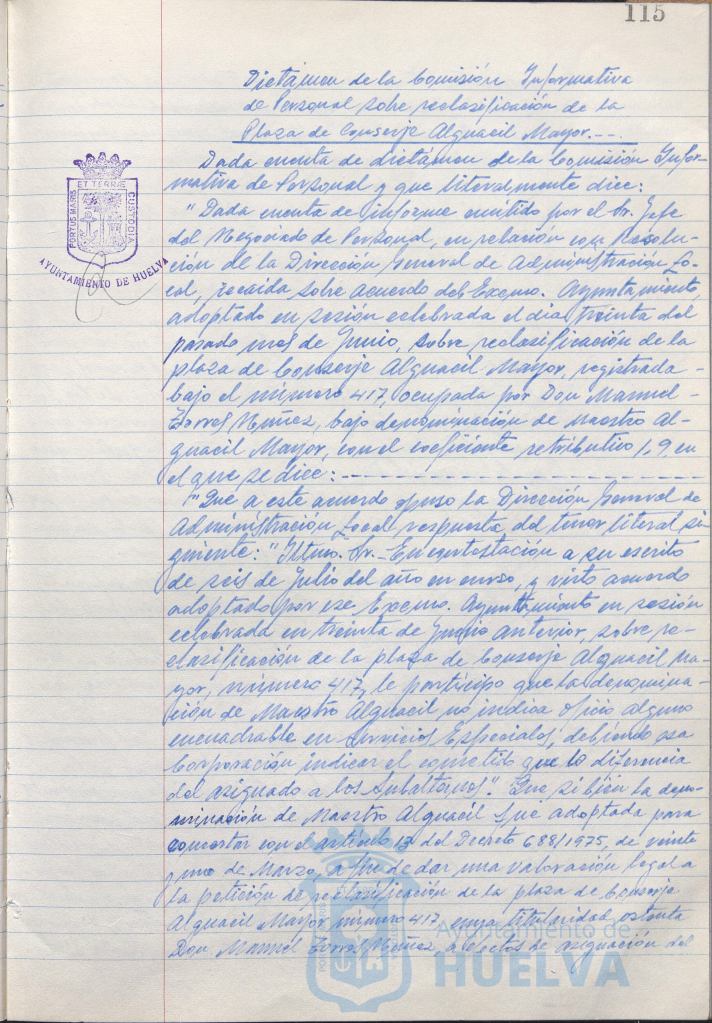 115
Dictámen de la Comisión Informativa
de Personal sobre reclasificación de la
Plaza de Conserje Alguacil Mayor.--
Dada cuenta de dictámen de la Comisión Infor-
mativa de Personal y que literalmente dice:
"Dada cuenta de informe emitido por el Sr. Jefe
del Negociado de Personal, en relación con Resolu-
ción de la Dirección General de Administración Lo-
cal, recaida sobre acuerdo del Excmo. Ayuntamiento,
adoptado en sesión celebrada el dia treinta del
pasado mes de Junio, sobre reclasificación de la
plaza de Conserje Alguacil Mayor, registrada
bajo el número 417, ocupada por Don Manuel
Torres Núñez, bajo denominación de Maestro Al-
guacil Mayor, con el coeficiente retributivo 1,9 en
el que se dice:
"Que a este acuerdo opuso la Dirección General de
Administración Local respuesta del tenor literal si-
guiente: "Iltmo. Sr.- En contestación a su escrito
de seis de Julio del año en curso, y visto acuerdo
adoptado por ese Excmo. Ayuntamiento en sesión
celebrada en treinta de Junio anterior, sobre re-
clasificación de la plaza de Conserje Alguacil Ma-
yor, número 417, le participo que la denomina-
ción de Maestro Alguacil no indica oficio alguno
encuadrable en Servicios Especiales, debiendo esa
Corporación indicar el cometido que lo diferencia
del asignado a los Subalternos". Que si bien la deno-
minación de Maestro Alguacil fue adoptada para
concertar con el artículo 13 del Decreto 688/1975, de veinte
y uno de Marzo, a fin de dar una valoración legal a
la petición de reclasificación de la plaza de Conserje
Alguacil Mayor número 417, cuya titularidad ostenta
Don Manuel Torres Núñez, a efectos de asignación del
PORTUS MARIS ET TERRAE CUSTODIA
AYUNTAMIENTO DE HUELVA
Ayuntamiento de
HUELVA